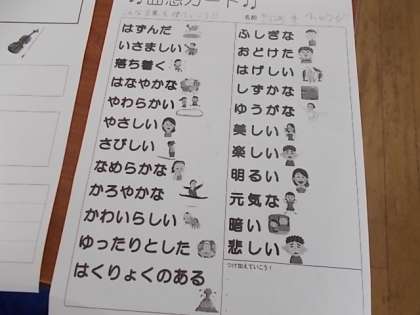 ♫曲想カード♫
名前
はずんだ
いさましい
落ち着く
はなやかな
やわらかい
やさしい
さびしい
なめらかな
かろやかな
かわいらしい
ゆったりとした
はくりょくのある
ふしぎな
おどけた
はげしい
しずかな
ゆうがな
美しい
楽しい
明るい
元気な
暗い
悲しい
つけ加えていこう！